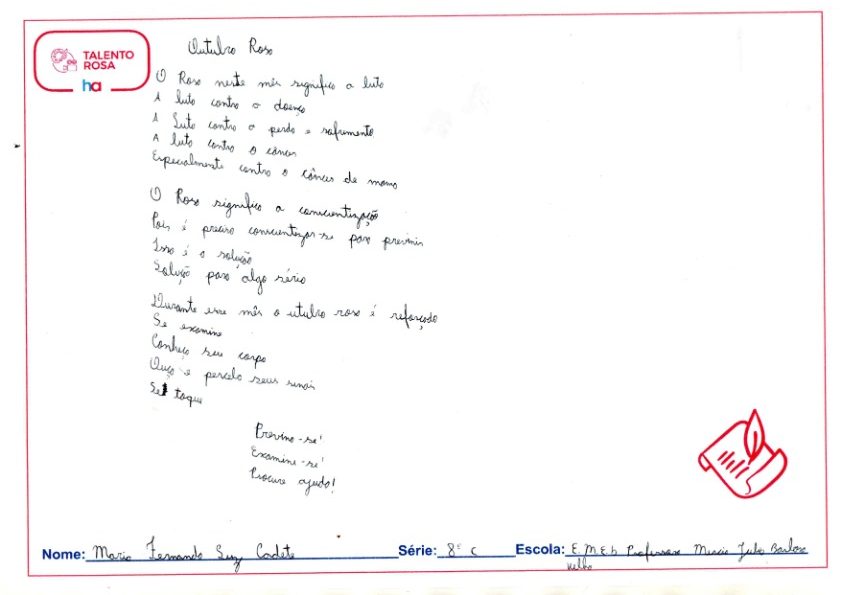 TALENTO
ROSA
ha
Outubro Rosa
O Rosa neste mês significa a luta
A luta contra a doença
A Luta contra a perda e sofrimento
A luta contra o câncer
Especialmente contra o câncer de mama
O Rosa significa a conscientização
Pois é preciso conscientizar-se para prevenir
Isso é a solução
Solução para algo sério
Durante esse mês o utubro rosa é reforçado
Se examine
Conheça seu corpo
Ouça e perceba seus sinais
Se toque
Previna-se!
Examine-se!
Procure ajuda!
Nome: Maria Fernanda Luz Cadete Série: 8º C Escola: E.M.E.b Professora Barbosa
velho